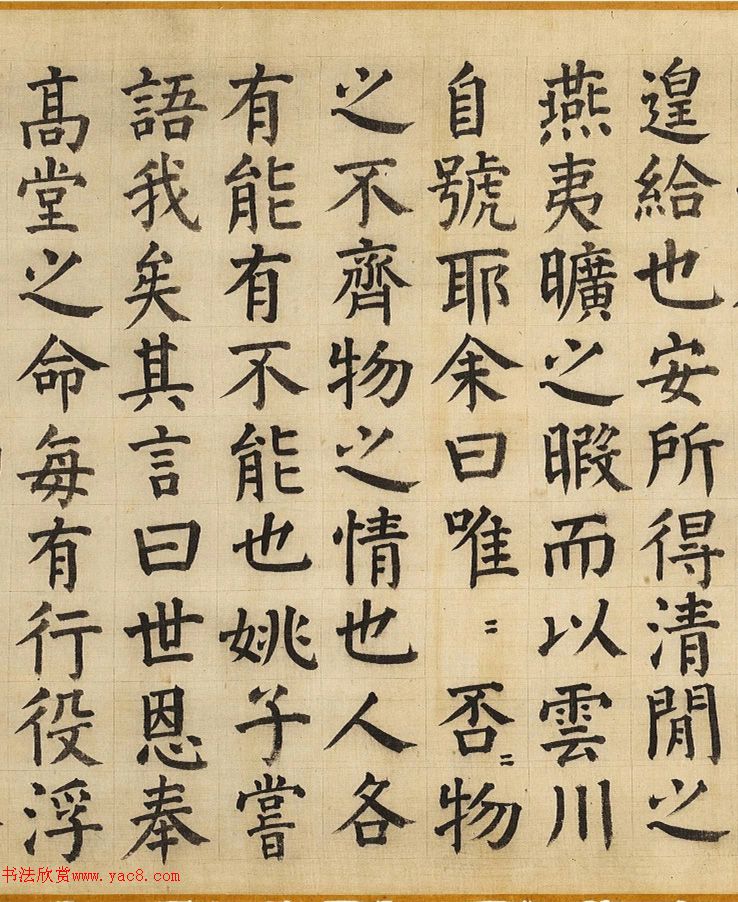 遑給也安所得清閒之
燕夷曠之暇而以雲川
自號耶余曰唯〻否〻物
之不齊物之情也人各
有能有不能也姚子嘗
語我矣其言曰世恩奉
高堂之命每有行役浮
书法欣赏www.yac8.com